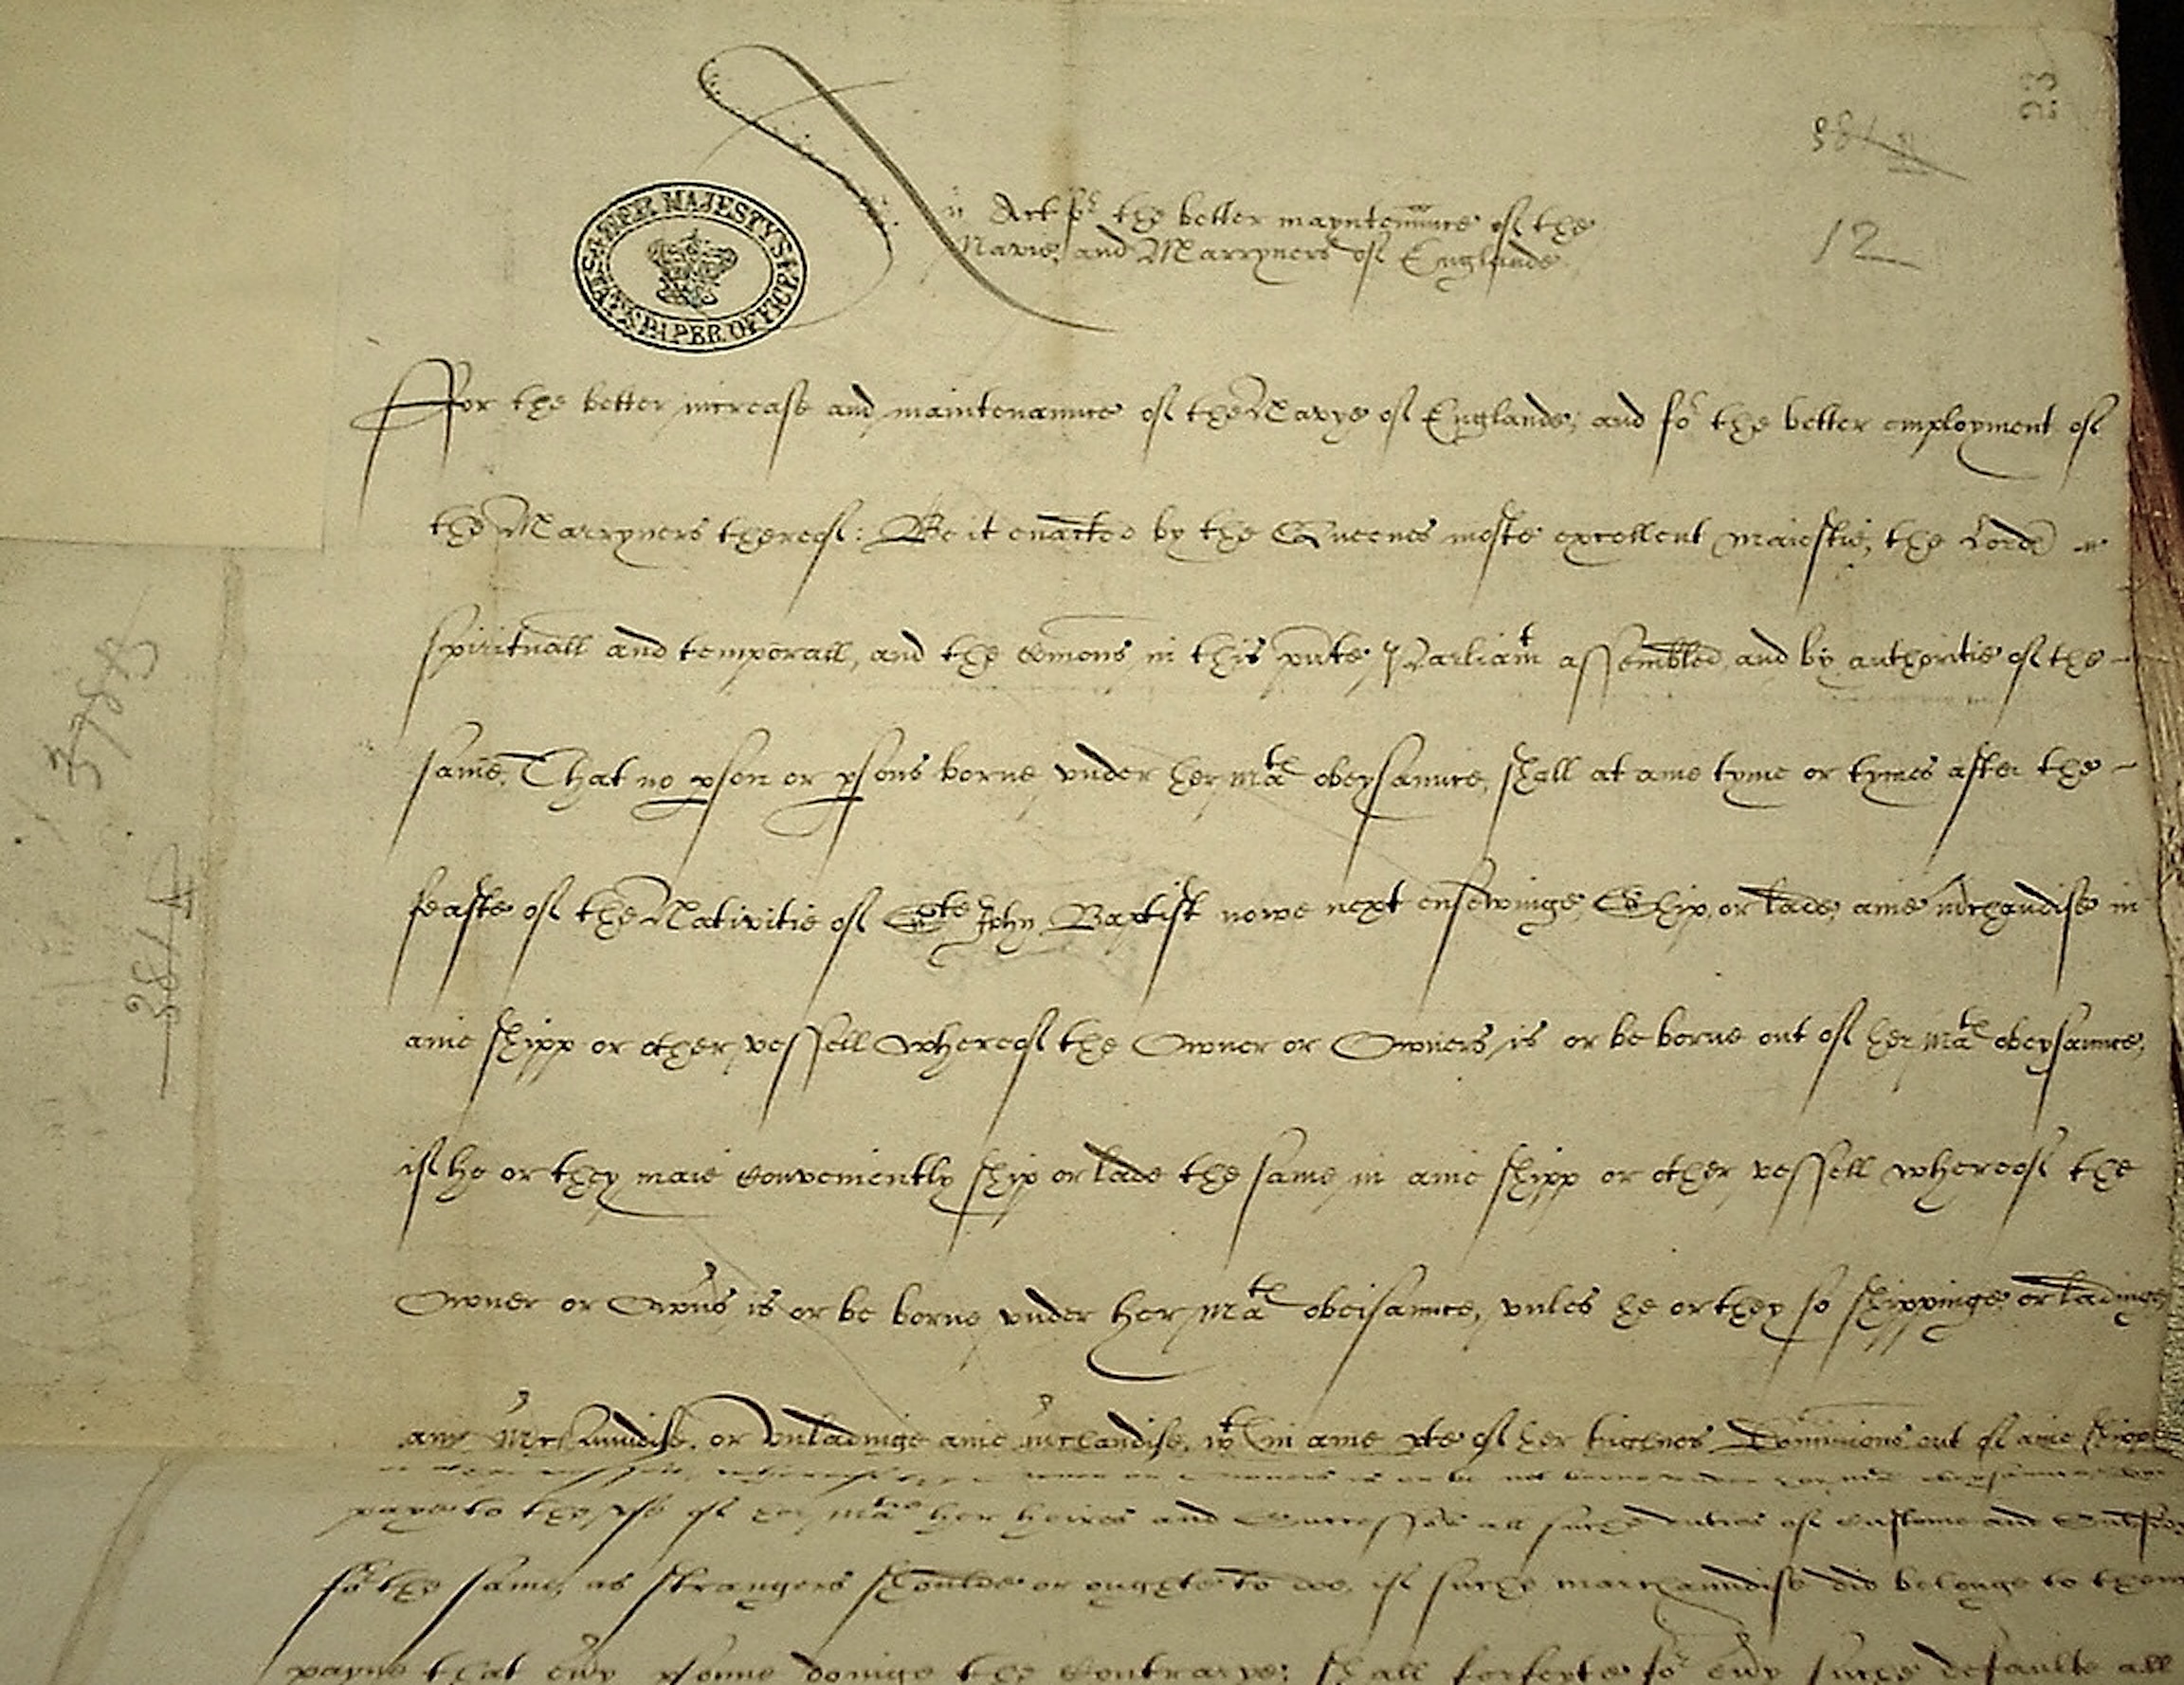 23
381
12
HER MAJESTY'S STATE PAPER OFFICE
An Act for the better mayntenaunce of the
Navie, and Marryners of Englande.
For the better increase and maintenaunce of the Navye of Englande, and for the better employment of
the Marryners thereof: Be it enacted by the Queenes moste excellent Maiestie, the Lordes
spirituall and temporall, and the Comons in this pnte Parliamt assembled, and by authoritie of the
same, That no pson or psons borne under her Mats obeysaunce, shall at anie tyme or tymes after the
feaste of the Nativitie of Scte John Baptist nowe next ensewinge, Ship, or lade, anie mrchandise in
anie shipp or other vessell whereof the Owner or Owners is or be borne out of her Mats obeysaunce,
if he or they maie conveniently ship or lade the same in anie shipp or other vessell whereof the
Owner or Owners is or be borne under her Mats obeisaunce, unles he or they so shippinge or ladinge
any Merchaundise, or unladinge anie mrchandise, wthin anie pte of her highnes Dominions out of anie shipp
paye to the use of her Mats her heires and Successors all suche duties of Custome and
for the same, as strangers shoulde or oughte to doe, if suche marchaundise did belonge to them
payne that every psonne doinge the Contrarye: shall forfeyte for every suche defaulte all
3788
381 A